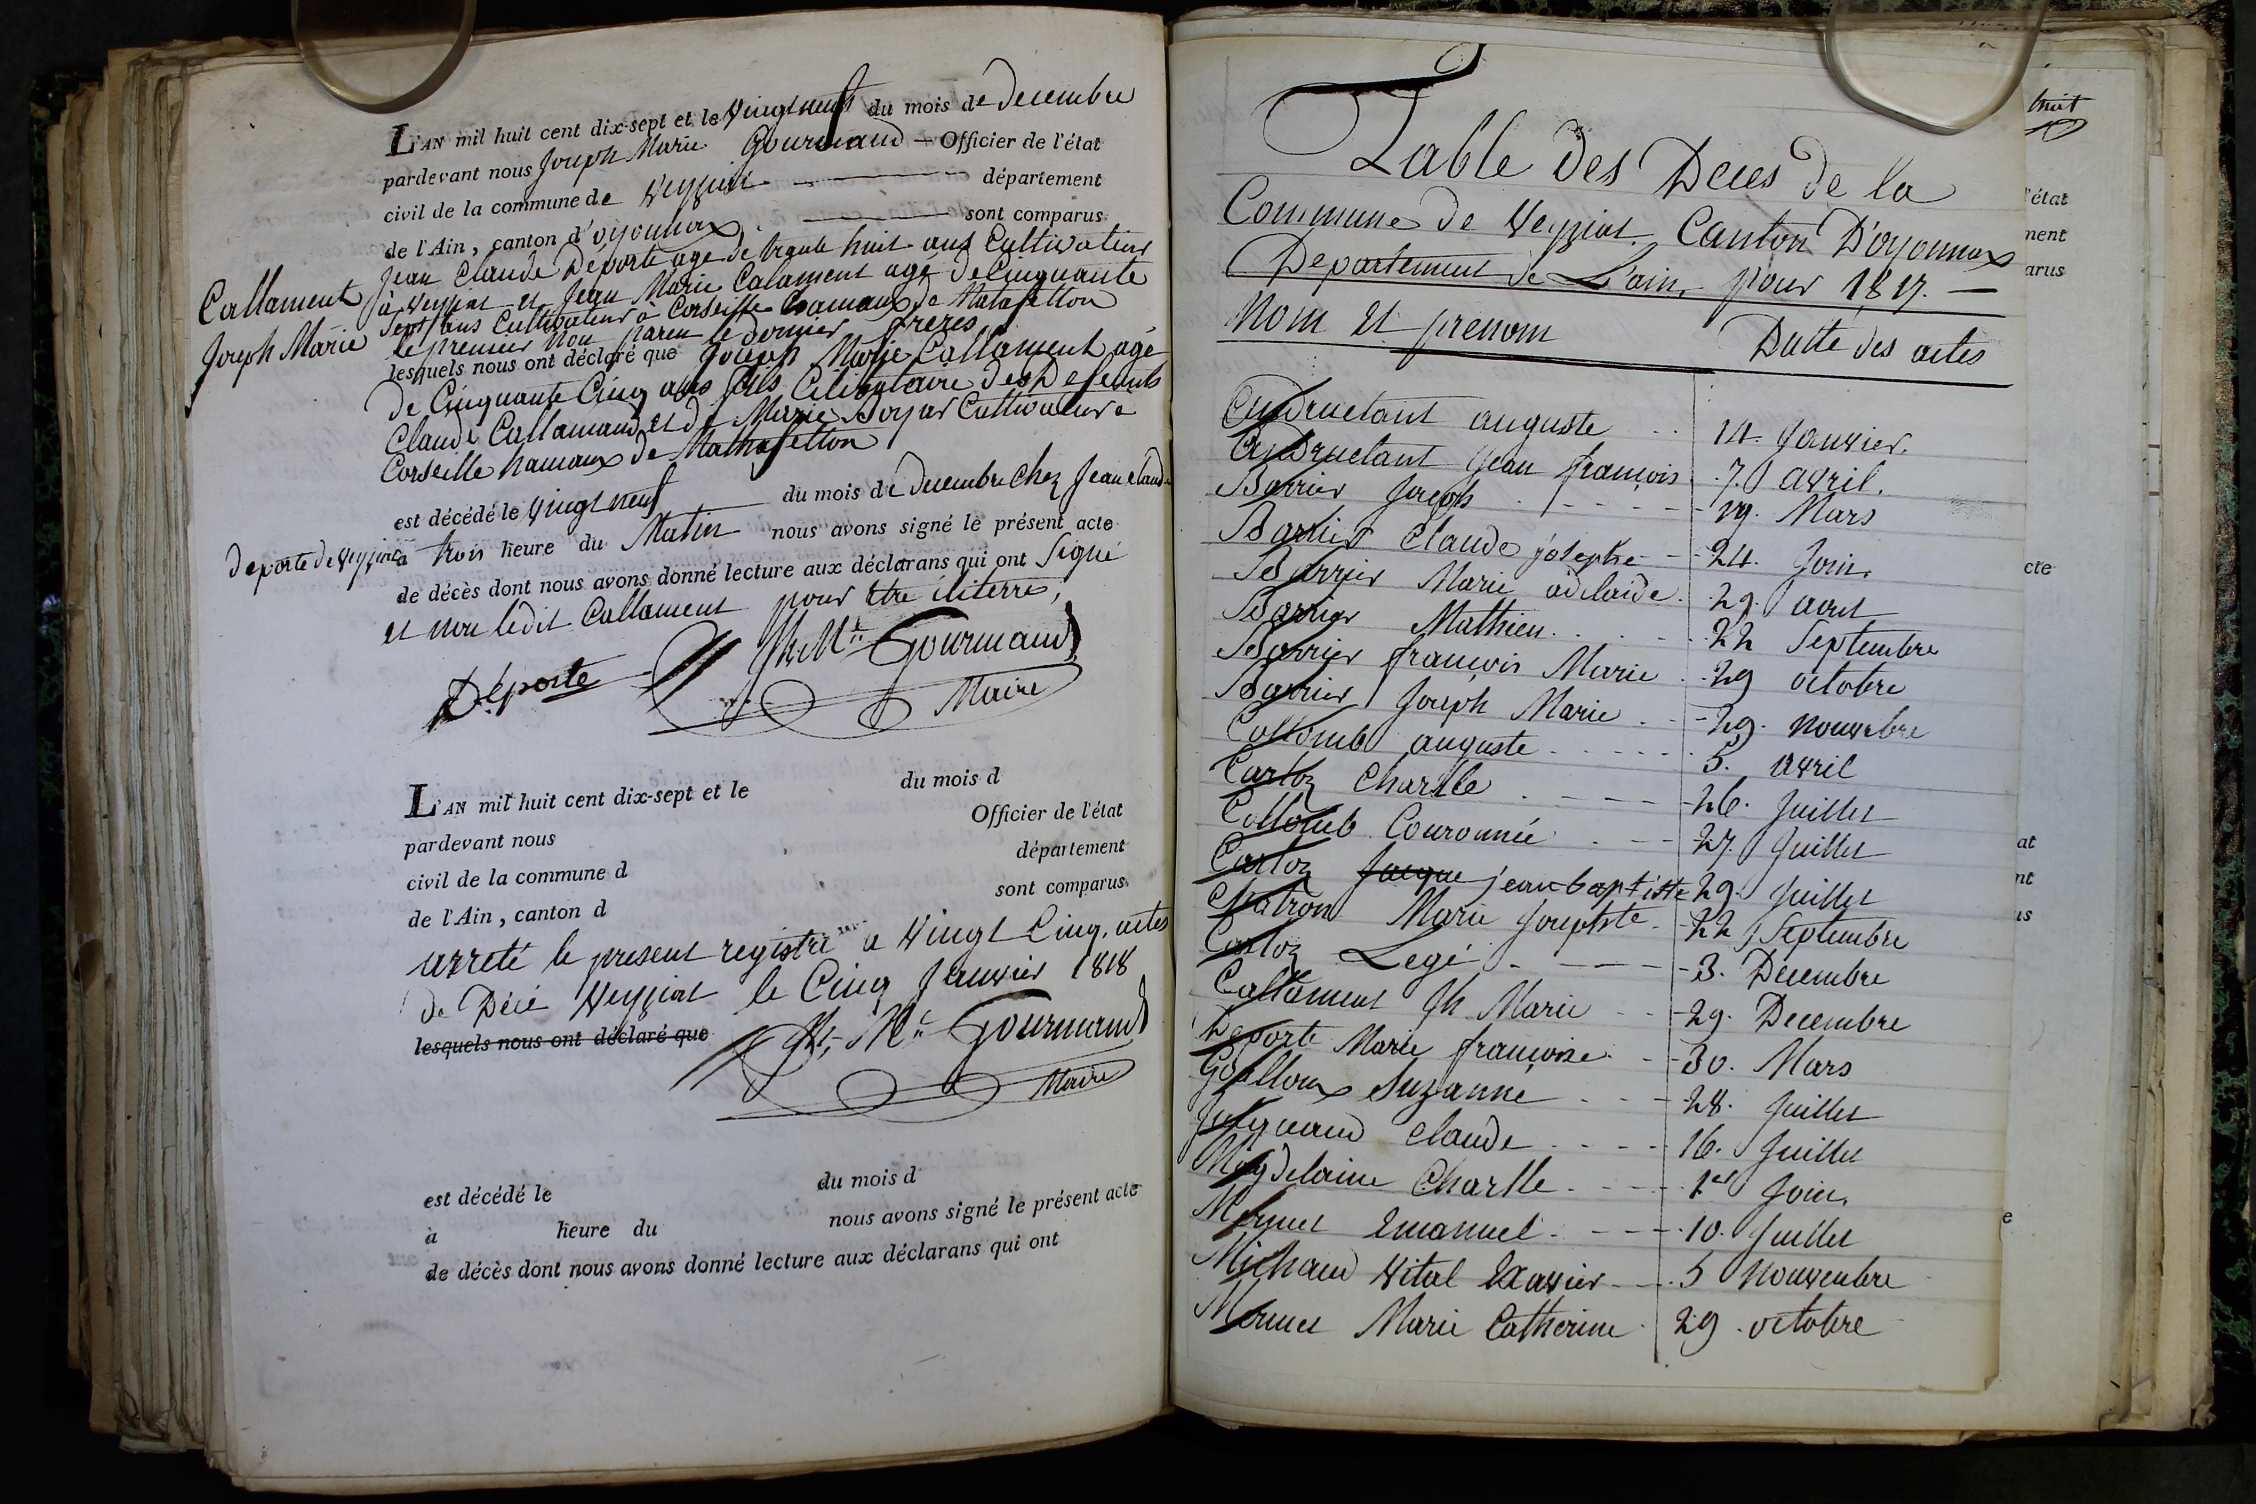 L'AN mil huit cent dix-sept et le Vingt neuf du mois de Decembre
pardevant nous Joseph Marie Gourmand — Officier de l'état
civil de la commune de Veyziat département
de l'Ain, canton d'oyonnax sont comparus
Jean Claude Deporte agé de trente huit ans Cultivateur
à Veyziat et Jean Marie Calament agé de Cinquante
Sept ans Cultivateur à Corseille hamaux de Matafelton
le premier non paren le dernier freres
Callament
Joseph Marie
lesquels nous ont déclaré que Joseph Marie Callament agé
de Cinquante Cinq ans fils Celibataire des Defeunts
Claude Callamand et de Marie Boyer Cultivateur a
Corseille hamaux de Mathafelton
est décédé le Vingt neuf du mois de Decembre Chez Jean Claude
Deporte de Veyziat à trois heure du Matin nous avons signé le présent acte
de décès dont nous avons donné lecture aux déclarans qui ont Signé
et non ledit Callament pour être iliterré,
Déporte Jh. Mie Gourmand
Maire
L'AN mil huit cent dix-sept et le du mois d
pardevant nous Officier de l'état
civil de la commune d département
de l'Ain, canton d sont comparus
arreté le present registre a Vingt Cinq actes
de Décé Veyziat le Cinq Janvier 1818
lesquels nous ont déclaré que
Jh. Mie Gourmand
Maire
est décédé le du mois d
à heure du nous avons signé le présent acte
de décès dont nous avons donné lecture aux déclarans qui ont
Table des Deces de la
Commune de Veyziat Canton D'oyonnax
Departement de L'ain, pour 1817. —
Nom et prenom Datte des actes
Andruetant auguste 14. Janvier.
Andruetant Jean françois 7. avril.
Barrier Joseph 19. Mars
Barrier Claude josephe 24. Join.
Barrier Marie adelaide 29. aout
Barrier Mathieu 22 Septembre
Barrier françois Marie 29 octobre
Barrier Joseph Marie 29. Nouvebre
Collomb auguste 5. avril
Carloz Charlle 26. Juillet
Collomb Couronnée 27. Juillet
Carloz Jacque jean baptiste 29. Juillet
Chatron Marie Josephte 22 Septembre
Carloz Legé 3. Decembre
Callament Jh Marie 29. Decembre
Deporte Marie françoise 30. Mars
Goelloux Suzanne 28. Juillet
Jacquand Claude 16. Juillet
Magdelaine Charlle 1er Join.
Mermet Emanuel 10. Juillet
Michaud Vital Exavier 5 Nouvembre
Mermet Marie Catherine 29. octobre
huit
l'état
ment
arus
cte
at
nt
us
e